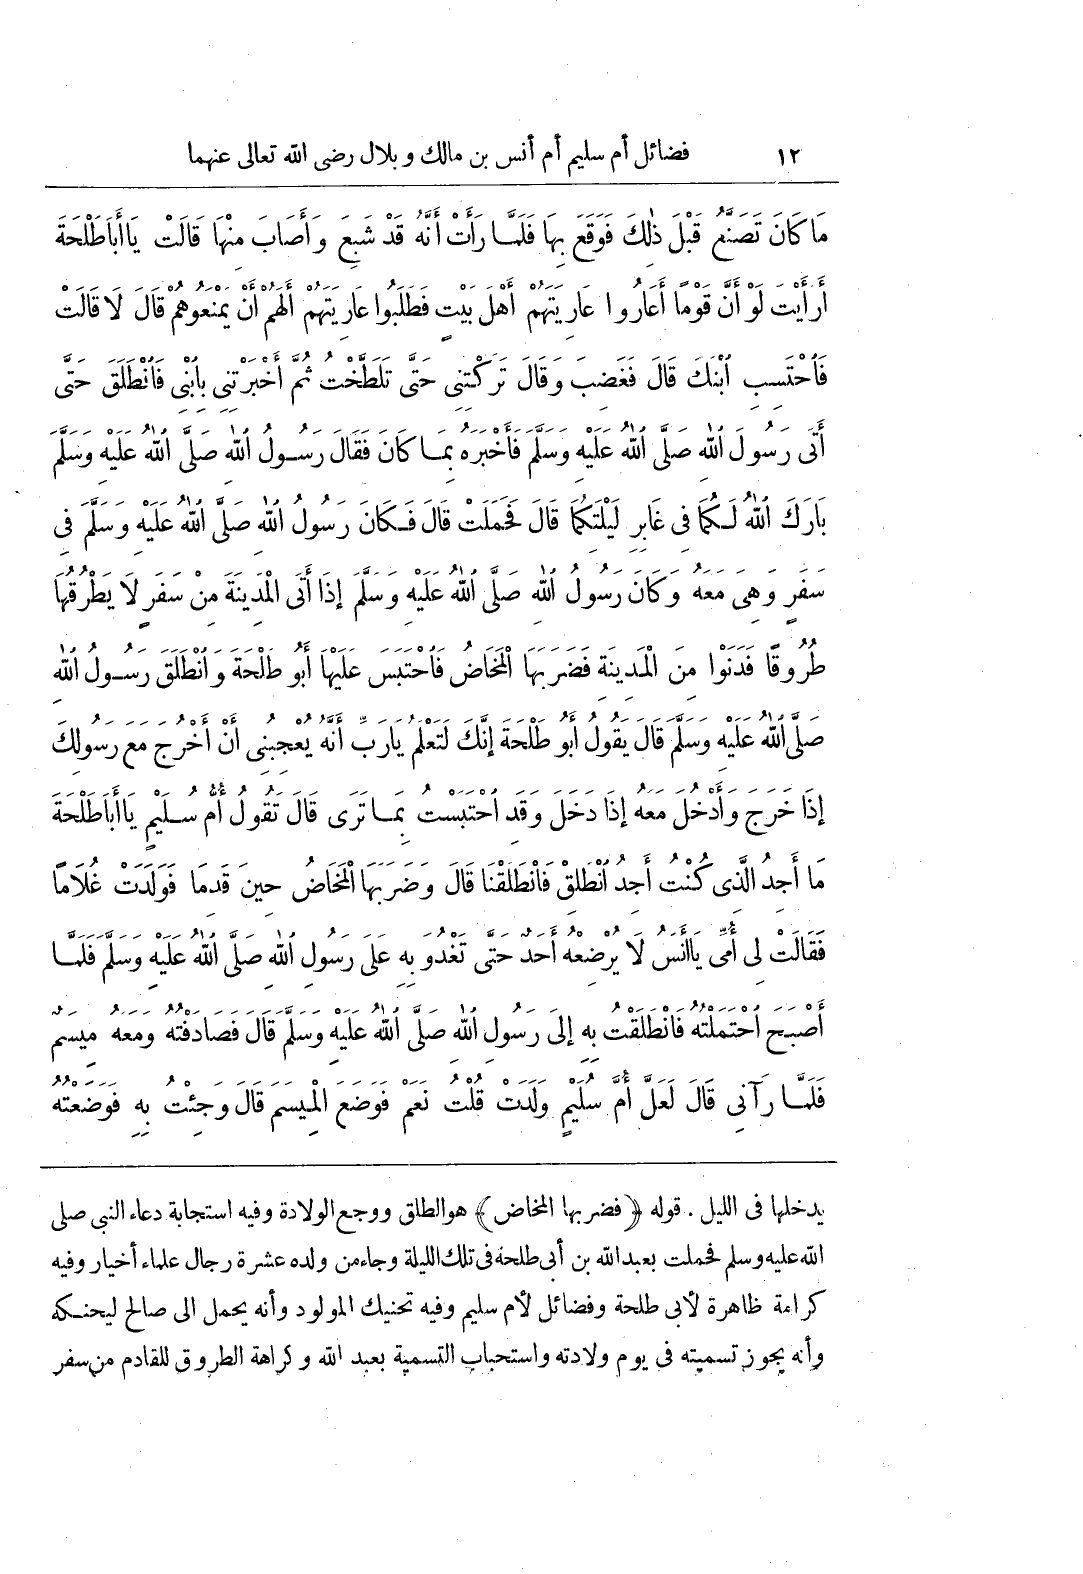 ١٢ فضائل أم سليم أم أنس بن مالك وبلال رضى الله تعالى عنهما
مَا كَانَ تَصَنَّعُ قَبْلَ ذٰلِكَ فَوَقَعَ بِهَا فَلَمَّا رَأَتْ أَنَّهُ قَدْ شَبِعَ وَأَصَابَ مِنْهَا قَالَتْ يَاأَبَاطَلْحَةَ
أَرَأَيْتَ لَوْ أَنَّ قَوْمًا أَعَارُوا عَارِيَتَهُمْ أَهْلَ بَيْتٍ فَطَلَبُوا عَارِيَتَهُمْ أَلَهُمْ أَنْ يَمْنَعُوهُمْ قَالَ لَا قَالَتْ
فَاُحْتَسِبِ اُبْنَكَ قَالَ فَغَضِبَ وَقَالَ تَرَكْتِنِى حَتَّى تَلَطَّخْتُ ثُمَّ أَخْبَرْتِنِى بِابْنِى فَانْطَلَقَ حَتَّى
أَتَى رَسُولَ اللهِ صَلَّى اللهُ عَلَيْهِ وَسَلَّمَ فَأَخْبَرَهُ بِمَا كَانَ فَقَالَ رَسُولُ اللهِ صَلَّى اللهُ عَلَيْهِ وَسَلَّمَ
بَارَكَ اللهُ لَكُمَا فِى غَابِرِ لَيْلَتِكُمَا قَالَ فَحَمَلَتْ قَالَ فَكَانَ رَسُولُ اللهِ صَلَّى اللهُ عَلَيْهِ وَسَلَّمَ فِى
سَفَرٍ وَهِىَ مَعَهُ وَكَانَ رَسُولُ اللهِ صَلَّى اللهُ عَلَيْهِ وَسَلَّمَ إِذَا أَتَى الْمَدِينَةَ مِنْ سَفَرٍ لَا يَطْرُقُهَا
طُرُوقًا فَدَنَوْا مِنَ الْمَدِينَةِ فَضَرَبَهَا الْمَخَاضُ فَاُحْتَبَسَ عَلَيْهَا أَبُو طَلْحَةَ وَانْطَلَقَ رَسُولُ اللهِ
صَلَّى اللهُ عَلَيْهِ وَسَلَّمَ قَالَ يَقُولُ أَبُو طَلْحَةَ إِنَّكَ لَتَعْلَمُ يَارَبِّ أَنَّهُ يُعْجِبُنِى أَنْ أَخْرُجَ مَعَ رَسُولِكَ
إِذَا خَرَجَ وَأَدْخُلَ مَعَهُ إِذَا دَخَلَ وَقَدِ اُحْتَبَسْتُ بِمَا تَرَى قَالَ تَقُولُ أُمُّ سُلَيْمٍ يَاأَبَاطَلْحَةَ
مَا أَجِدُ الَّذِى كُنْتُ أَجِدُ اُنْطَلِقْ فَانْطَلَقْنَا قَالَ وَضَرَبَهَا الْمَخَاضُ حِينَ قَدِمَا فَوَلَدَتْ غُلَامًا
فَقَالَتْ لِى أُمِّى يَاأَنَسُ لَا يُرْضِعُهُ أَحَدٌ حَتَّى تَغْدُوَ بِهِ عَلَى رَسُولِ اللهِ صَلَّى اللهُ عَلَيْهِ وَسَلَّمَ فَلَمَّا
أَصْبَحَ اُحْتَمَلْتُهُ فَانْطَلَقْتُ بِهِ إِلَى رَسُولِ اللهِ صَلَّى اللهُ عَلَيْهِ وَسَلَّمَ قَالَ فَصَادَفْتُهُ وَمَعَهُ مِيسَمٌ
فَلَمَّا رَآنِى قَالَ لَعَلَّ أُمَّ سُلَيْمٍ وَلَدَتْ قُلْتُ نَعَمْ فَوَضَعَ الْمِيسَمَ قَالَ وَجِئْتُ بِهِ فَوَضَعْتُهُ
يدخلها فى الليل . قوله ﴿ فضربها المخاض ﴾ هو الطلق ووجع الولادة وفيه استجابة دعاء النبى صلى
الله عليه وسلم فحملت بعبد الله بن أبى طلحة فى تلك الليلة وجاء من ولده عشرة رجال علماء أخيار وفيه
كرامة ظاهرة لأبى طلحة وفضائل لأم سليم وفيه تحنيك المولود وأنه يحمل الى صالح ليحنكه
وأنه يجوز تسميته فى يوم ولادته واستحباب التسمية بعبد الله وكراهة الطروق للقادم من سفر